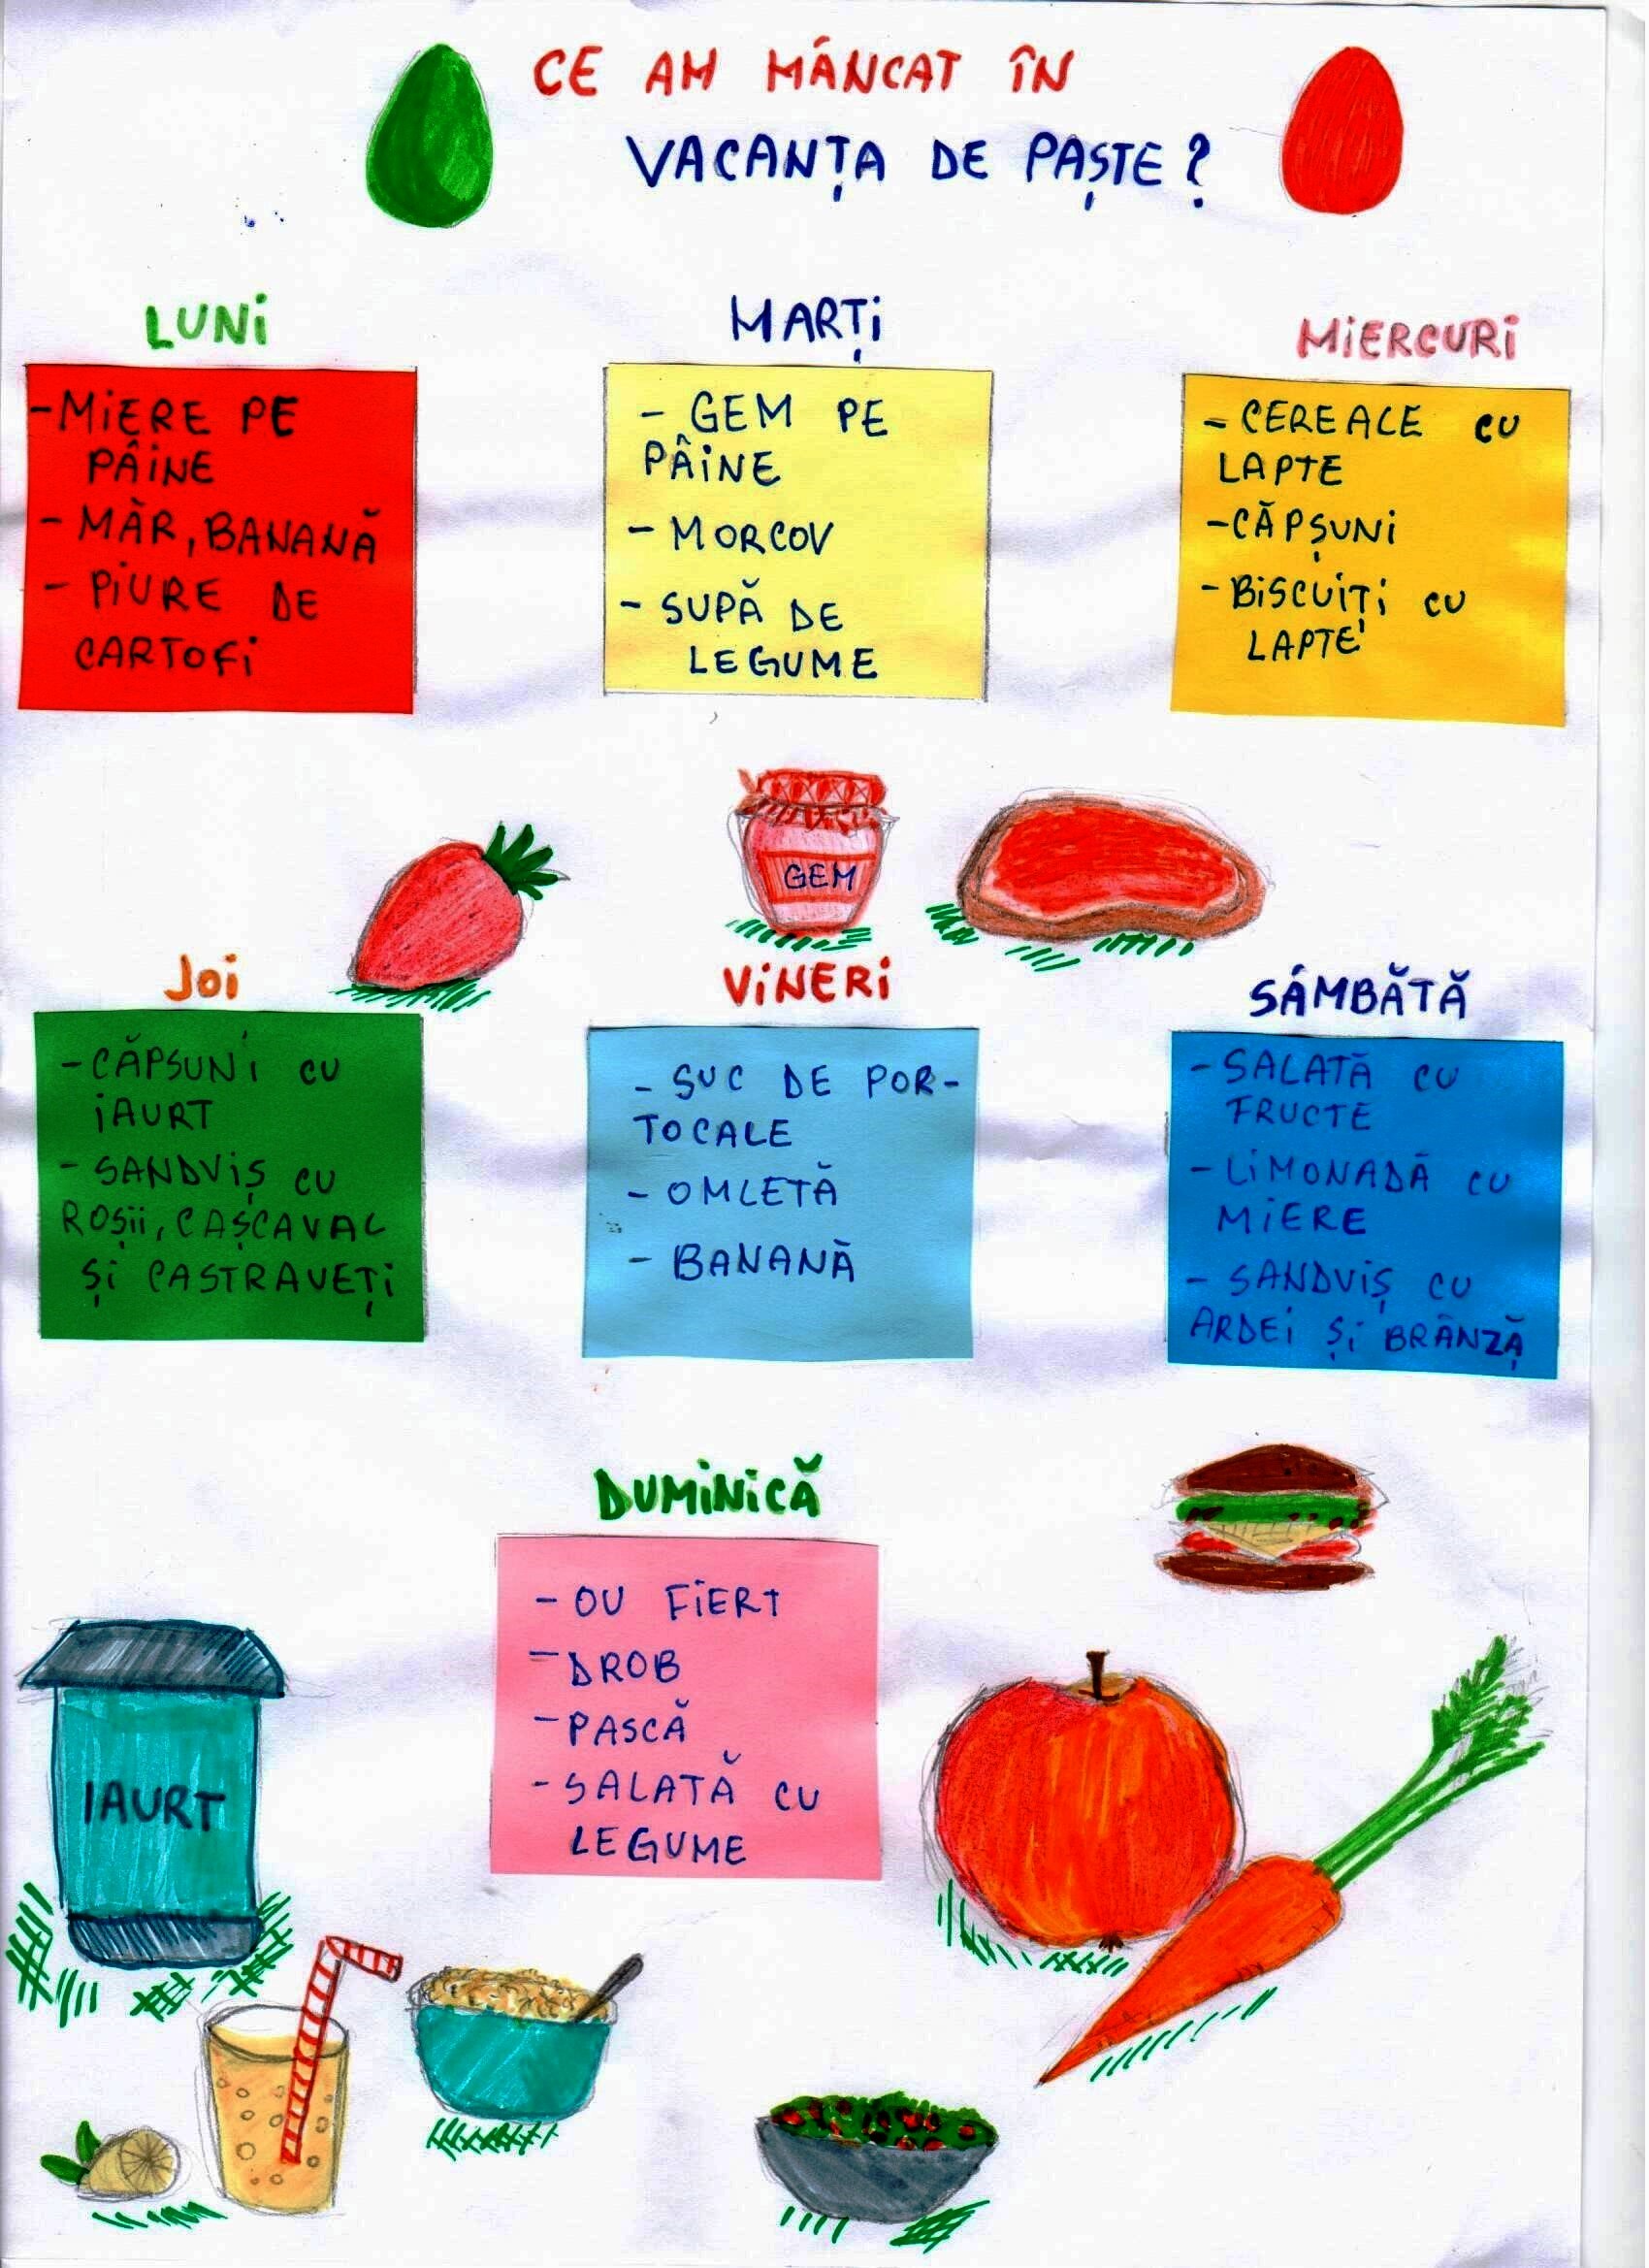 CE AM MÂNCAT ÎN
VACANȚA DE PAȘTE?
LUNI
- MIERE PE
PÂINE
- MĂR, BANANĂ
- PIURE DE
CARTOFI
MARȚI
- GEM PE
PÂINE
- MORCOV
- SUPĂ DE
LEGUME
MIERCURI
- CEREALE CU
LAPTE
- CĂPȘUNI
- BISCUIȚI CU
LAPTE
GEM
JOI
- CĂPSUNI CU
IAURT
- SANDVIȘ CU
ROȘII, CAȘCAVAL
ȘI CASTRAVEȚI
VINERI
- SUC DE POR-
TOCALE
- OMLETĂ
- BANANĂ
SÂMBĂTĂ
- SALATĂ CU
FRUCTE
- LIMONADĂ CU
MIERE
- SANDVIȘ CU
ARDEI ȘI BRÂNZĂ
DUMINICĂ
- OU FIERT
- DROB
- PASCĂ
- SALATĂ CU
LEGUME
IAURT